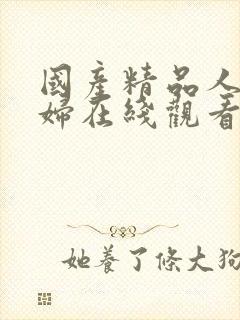 國產精品人
婦在綫觀看
她養了條大狗